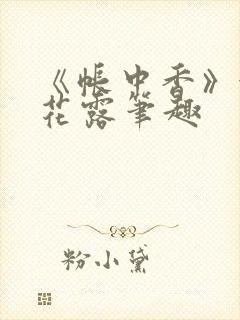 《帐中香》
花露笔趣
粉小黛